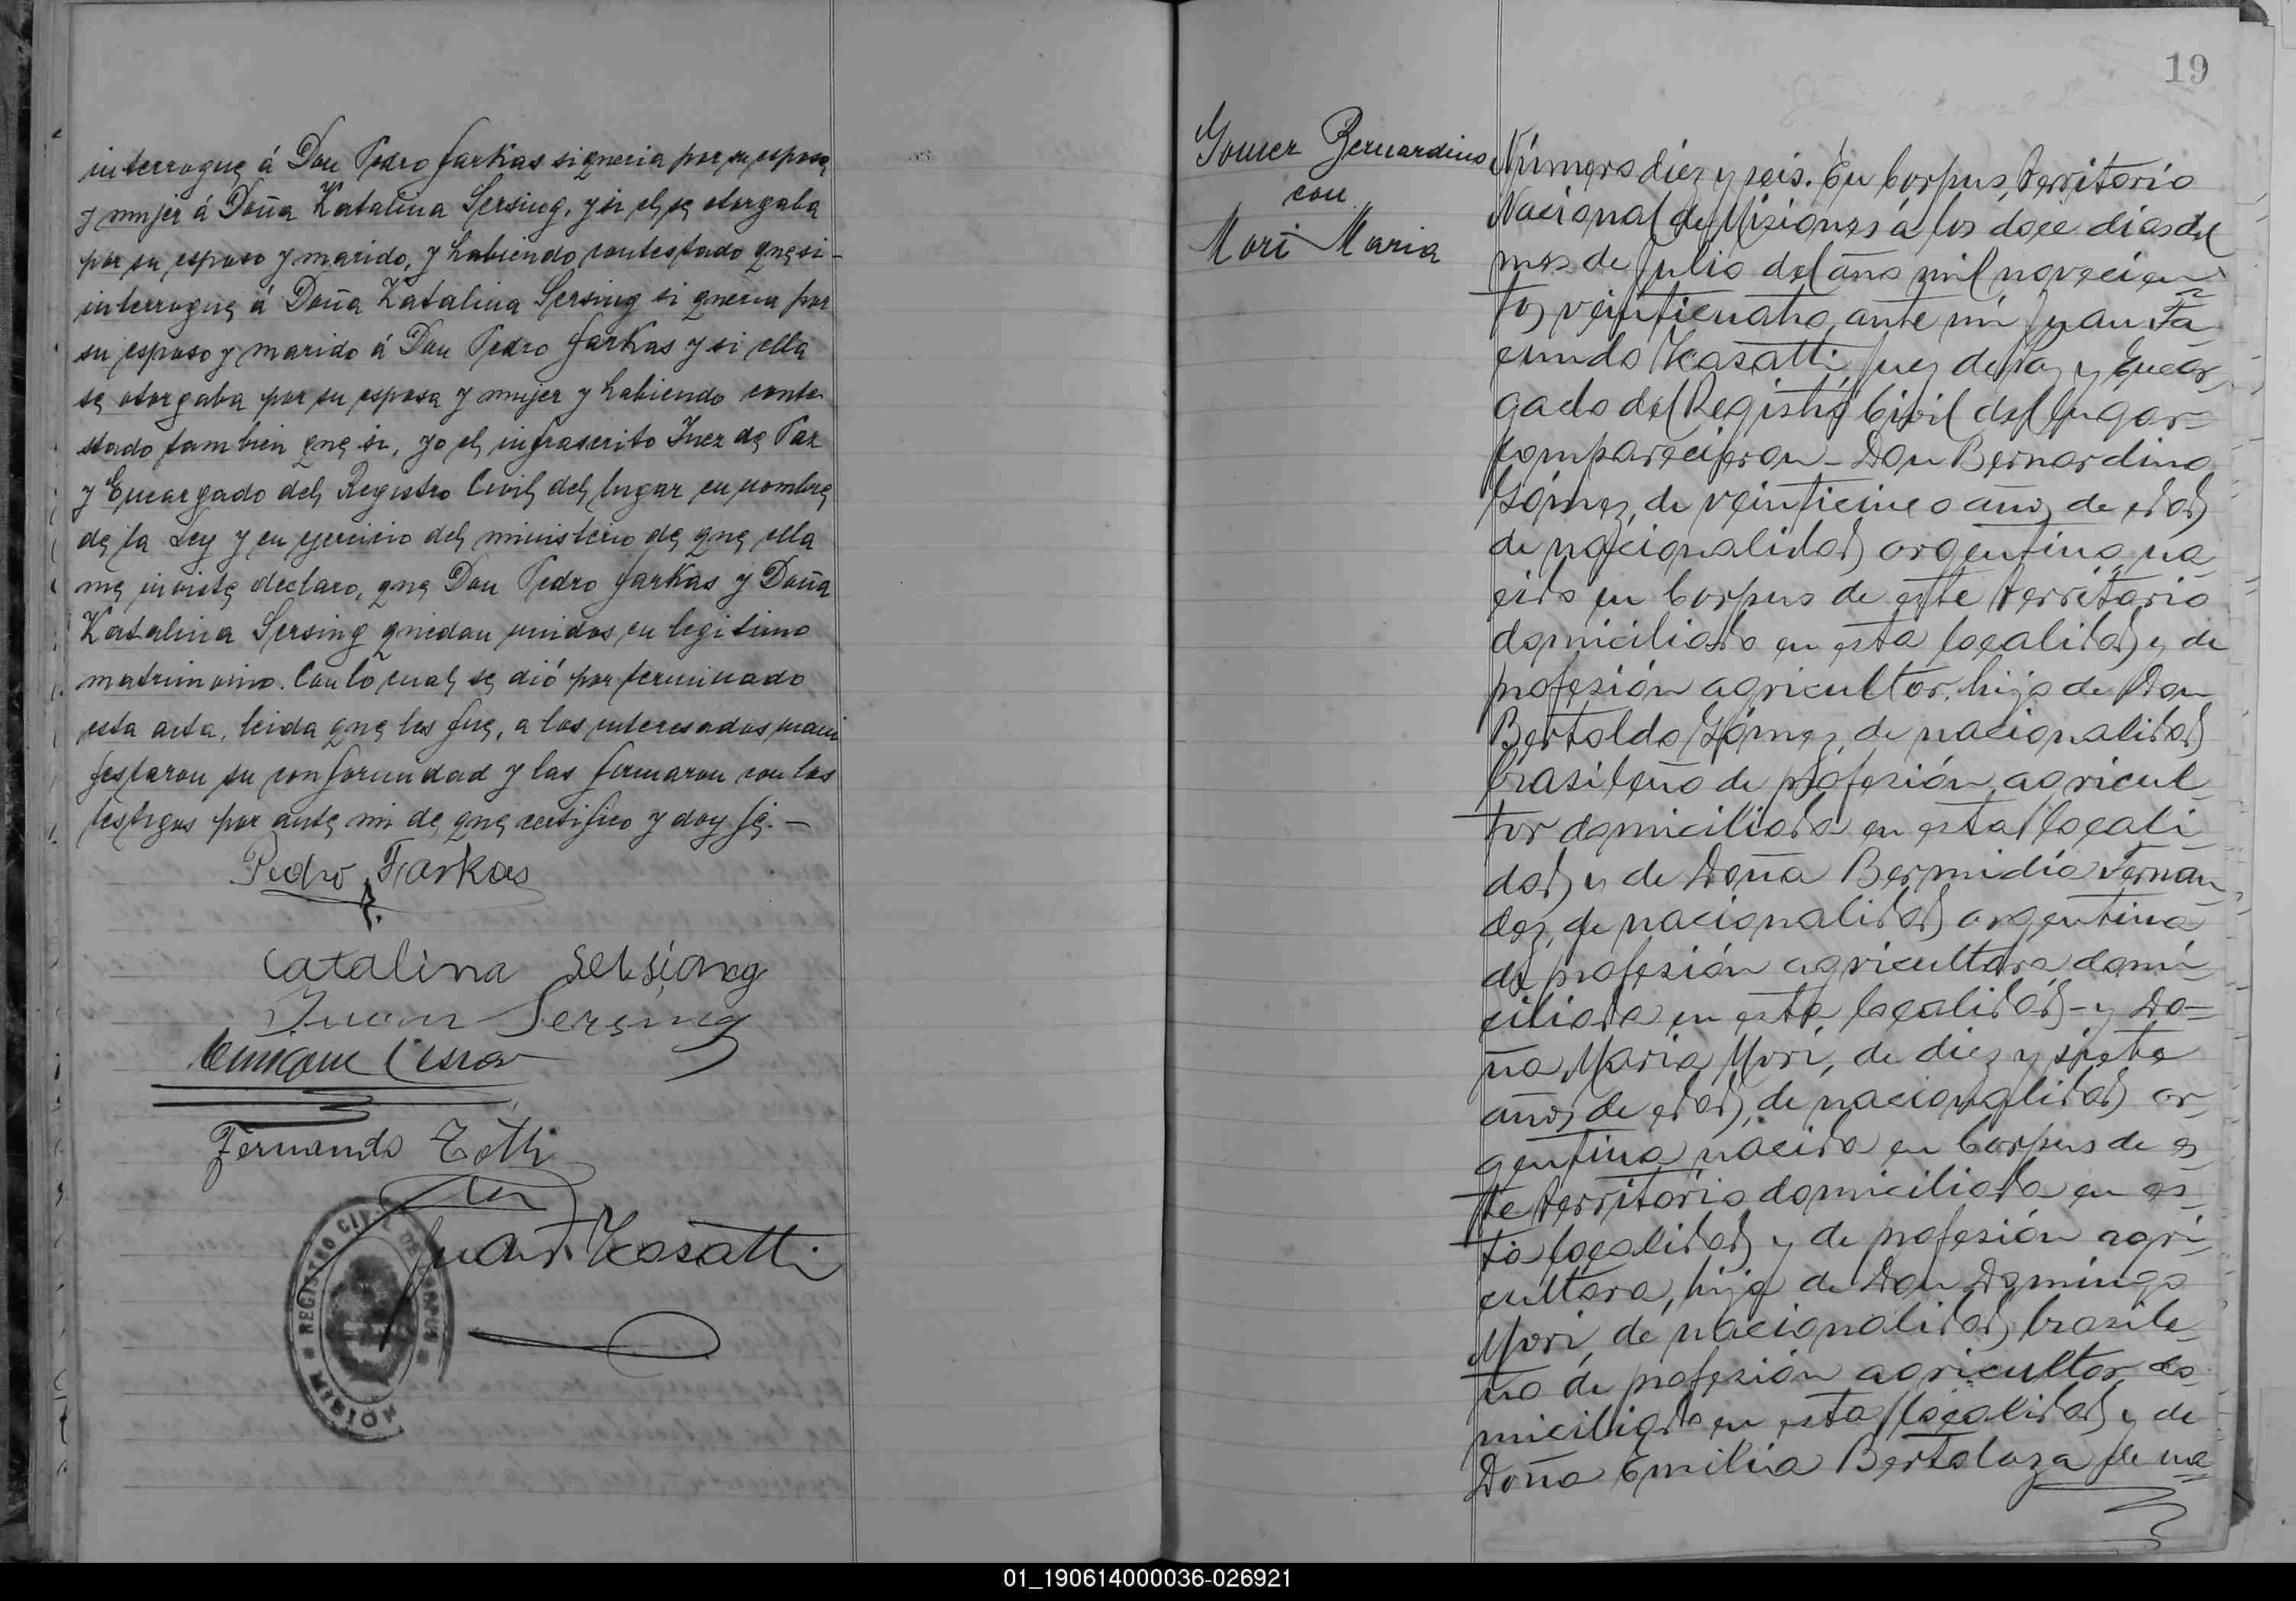 interrogué á Don Pedro Farkas si queria por su esposa
y mujer á Doña Katalina Sersing, y si el se otorgaba
por su esposo y marido, y habiendo contestado que si-
interrogué á Doña Katalina Sersing si queria por
su esposo y marido á Don Pedro Farkas y si ella
se otorgaba por su esposa y mujer y habiendo conte
stado tambien que si, yo el infrascrito Juez de Paz
y Encargado del Registro Civil del lugar en nombre
de la Ley y en ejercicio del ministerio de que ella
me inviste declaro, que Don Pedro Farkas y Doña
Katalina Sersing quedan unidos en legitimo
matrimonio. Con lo cual se dió por terminado
esta acta, leida que les fue, a los interesados mani
festaron su conformidad y las firmaron con los
testigos por ante mi de que certifico y doy fé.-
Pedro Farkas
Catalina
Juan Sersing
Fernando
Juan F. Kosatti
REGISTRO CIVIL DE CORPUS
MISION
19
Gomez Bernardino
con
Mori Maria
Número diez y seis. En Corpus, territorio
Nacional de Misiones á los doce dias del
mes de Julio del año mil novecien
tos veinticuatro, ante mí Juan Fa
cundo Kosatti Juez de Paz y Encar
gado del Registro Civil del lugar-
comparecieron- Don Bernardino
Gómez, de veinticinco años de edad
de nacionalidad argentino, na
cido en Corpus de este territorio
domiciliado en esta localidad y de
profesión agricultor, hijo de Don
Bertoldo Gómez, de nacionalidad
brasileño de profesión agricul
tor domiciliado en esta locali
dad y de Doña Bermidia Fernan
dez, de nacionalidad argentina
de profesión agricultora domi
ciliada en esta localidad- y Do=
ña Maria Mori, de diez y siete
años de edad, de nacionalidad ar
gentina nacida en Corpus de es
te territorio domiciliada en es
ta localidad y de profesión agri
cultora, hija de Don Domingo
Mori, de nacionalidad brasile
ño de profesión agricultor do
miciliado en esta localidad y de
Doña Emilia Bertoloza de na
01_190614000036-026921